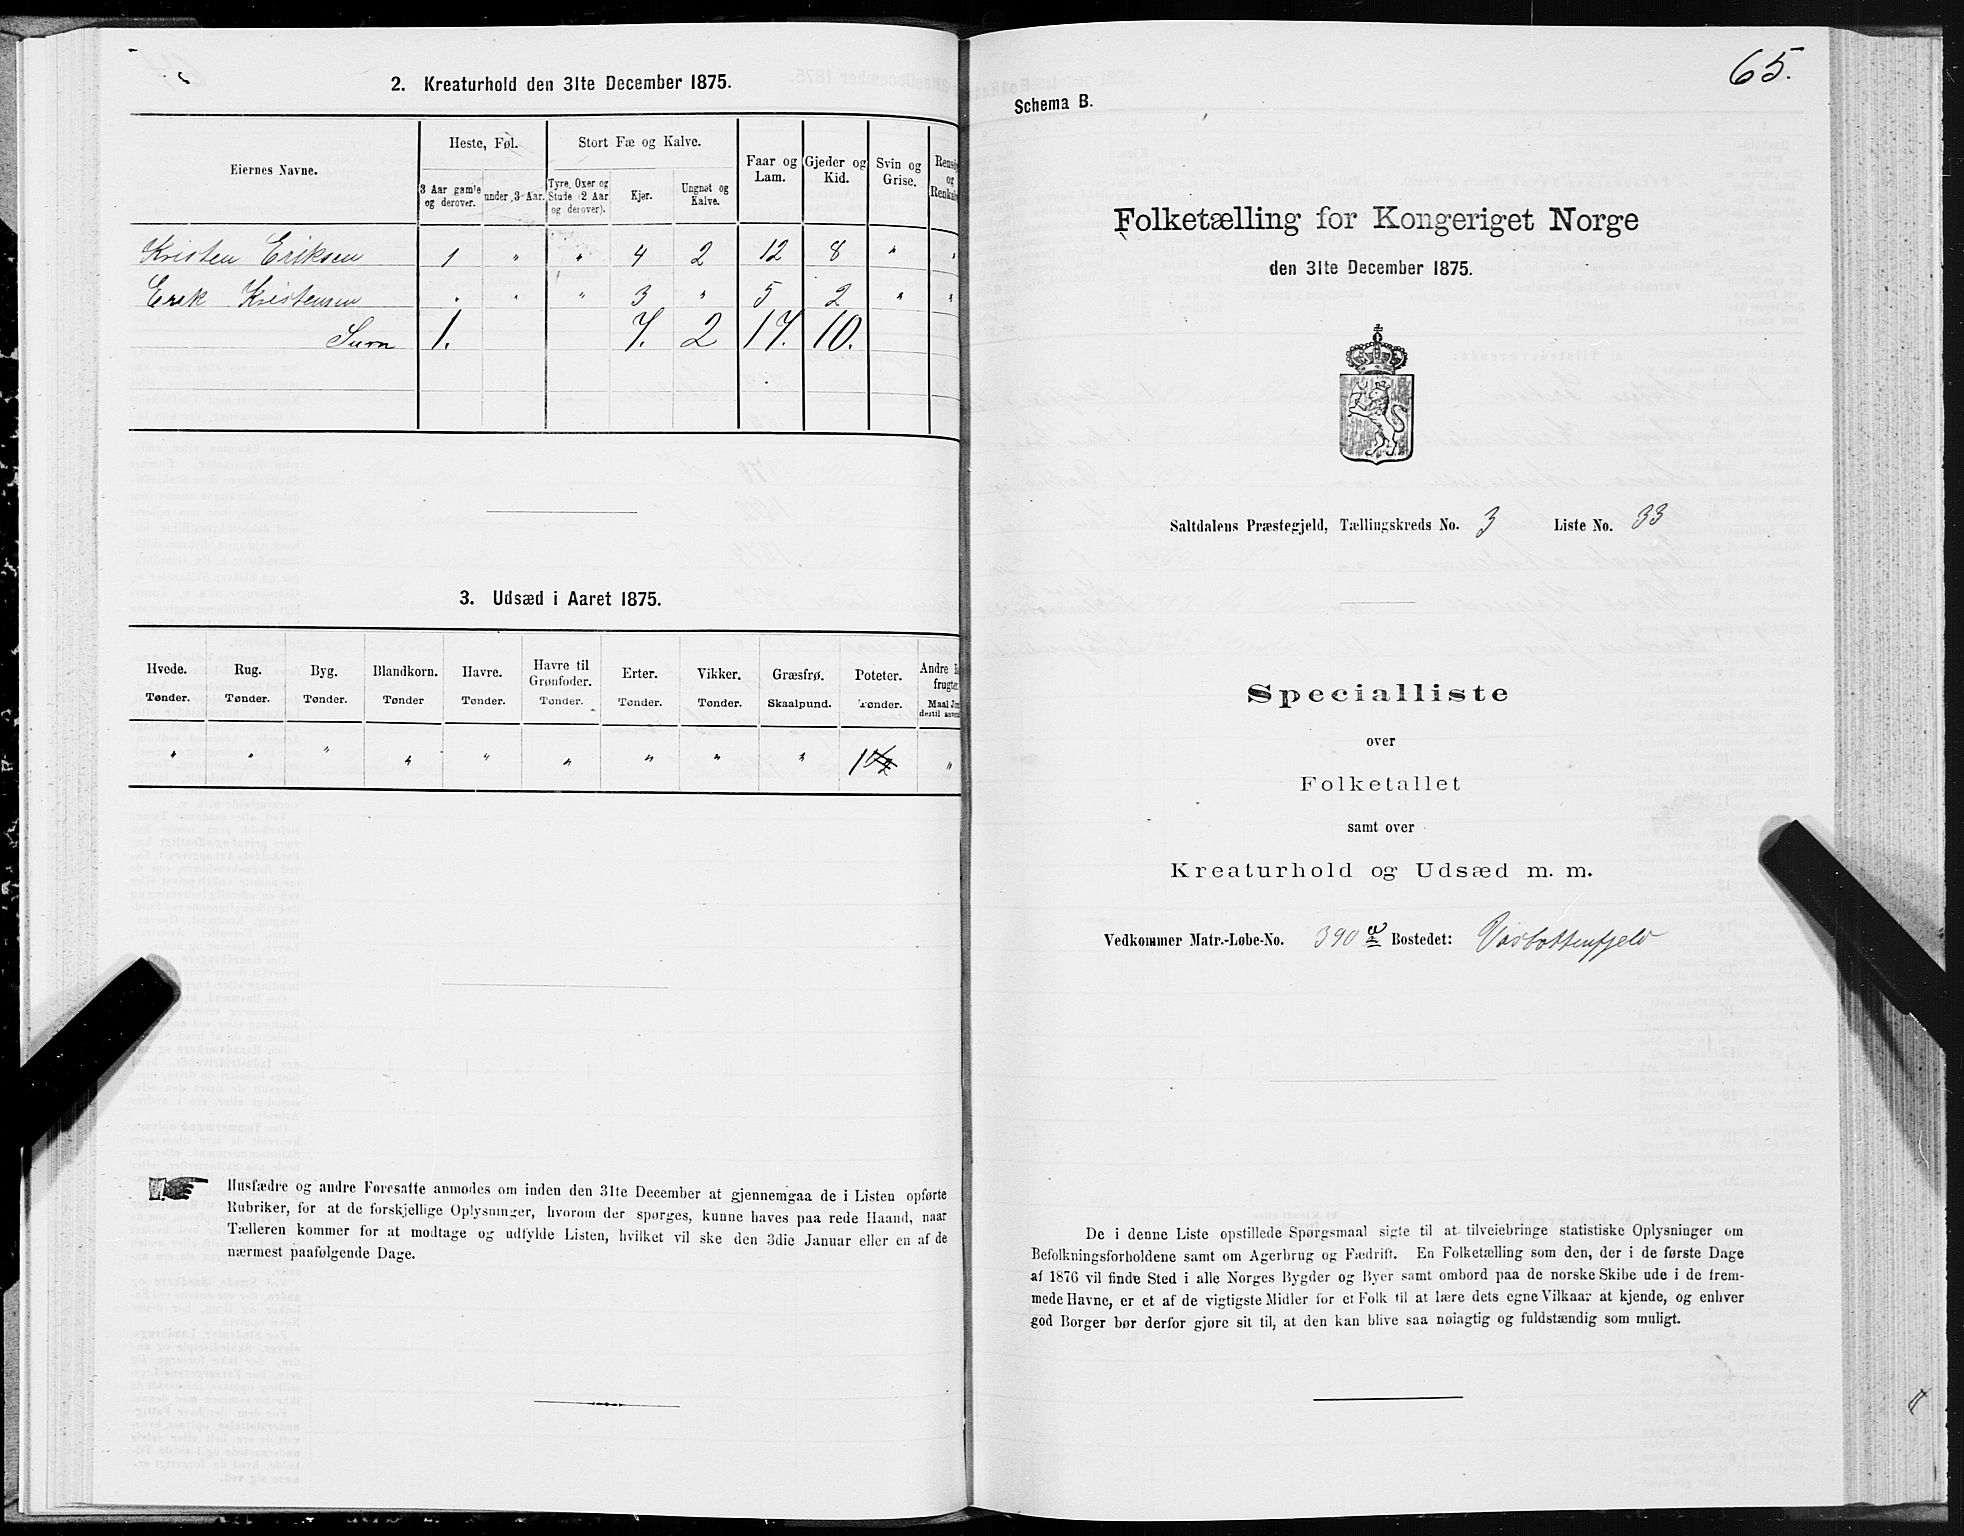 2. Kreaturhold den 31te December 1875.
Eiernes Navne.
Heste, Føl.
Stort Fæ og Kalve.
Faar og Lam.
Gjeder og Kid.
Svin og Grise.
og
3 Aar gamle og derover.
under 3 Aar.
Tyre, Oxer og Stude (2 Aar og derover).
Kjør.
Ungnøt og Kalve.
Kristen Eriksen 1 " " 4 2 12 8 " "
Erik Kristensen " " " 3 " 5 2 " "
Sum 1. 7. 2 17. 10.
3. Udsæd i Aaret 1875.
Hvede. Rug. Byg. Blandkorn. Havre. Havre til Grønfoder. Erter. Vikker. Græsfrø. Poteter. Andre
Tønder. Tønder. Tønder. Tønder Tønder. Tønder. Tønder. Tønder. Skaalpund. Tønder. Maal
" " " " " " " " " 1 1/2 "
Husfædre og andre Foresatte anmodes om inden den 31te December at gjennemgaa de i Listen opførte
Rubriker, for at de forskjellige Oplysninger, hvorom der spørges, kunne haves paa rede Haand, naar
Tælleren kommer for at modtage og udfylde Listen, hvilket vil ske den 3die Januar eller en af de
nærmest paafølgende Dage.
65.
Schema B.
Folketælling for Kongeriget Norge
den 31te December 1875.
Saltdalens Præstegjeld, Tællingskreds No. 3 Liste No. 33
Specialliste
over
Folketallet
samt over
Kreaturhold og Udsæd m. m.
Vedkommer Matr.-Løbe-No. 390 a Bostedet: Vasbottenfjeld
De i denne Liste opstillede Spørgsmaal sigte til at tilveiebringe statistiske Oplysninger om
Befolkningsforholdene samt om Agerbrug og Fædrift. En Folketælling som den, der i de første Dage
af 1876 vil finde Sted i alle Norges Bygder og Byer samt ombord paa de norske Skibe ude i de frem-
mede Havne, er et af de vigtigste Midler for et Folk til at lære dets egne Vilkaar at kjende, og enhver
god Borger bør derfor gjøre sit til, at den kan blive saa nøiagtig og fuldstændig som muligt.